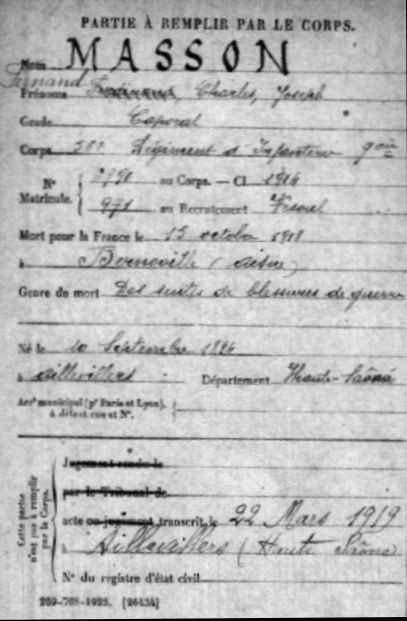 PARTIE À REMPLIR PAR LE CORPS.
Nom MASSON
Fernand
Prénoms Ferdinand, Charles, Joseph
Grade Caporal
Corps Régiment d'Infanterie
N° Matricule. au Corps. — Cl 1914
971 au Recrutement Vesoul
Mort pour la France le 15 octobre 1918
à Berneville (Aisne)
Genre de mort Des suites de blessures de guerre
Né le 10 Septembre 1894
à Aillevillers Département Haute-Saône
Arrt municipal (pr Paris et Lyon),
à défaut rue et N°.
Cette partie n'est pas à remplir par le Corps.
Jugement rendu le
par le Tribunal de
acte ou jugement transcrit le 22 Mars 1919
à Aillevillers (Haute Saône
N° du registre d'état civil
269-708-1922. [26434]